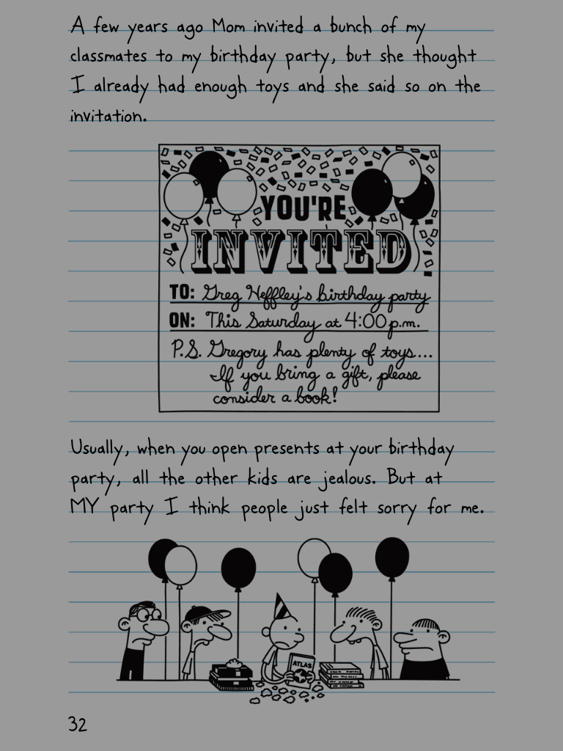 A few years ago Mom invited a bunch of my
classmates to my birthday party, but she thought
I already had enough toys and she said so on the
invitation.
YOU'RE
INVITED
TO: Greg Heffley's birthday party
ON: This Saturday at 4:00 p.m.
P.S. Gregory has plenty of toys...
If you bring a gift, please
consider a book!
Usually, when you open presents at your birthday
party, all the other kids are jealous. But at
MY party I think people just felt sorry for me.
ATLAS
32